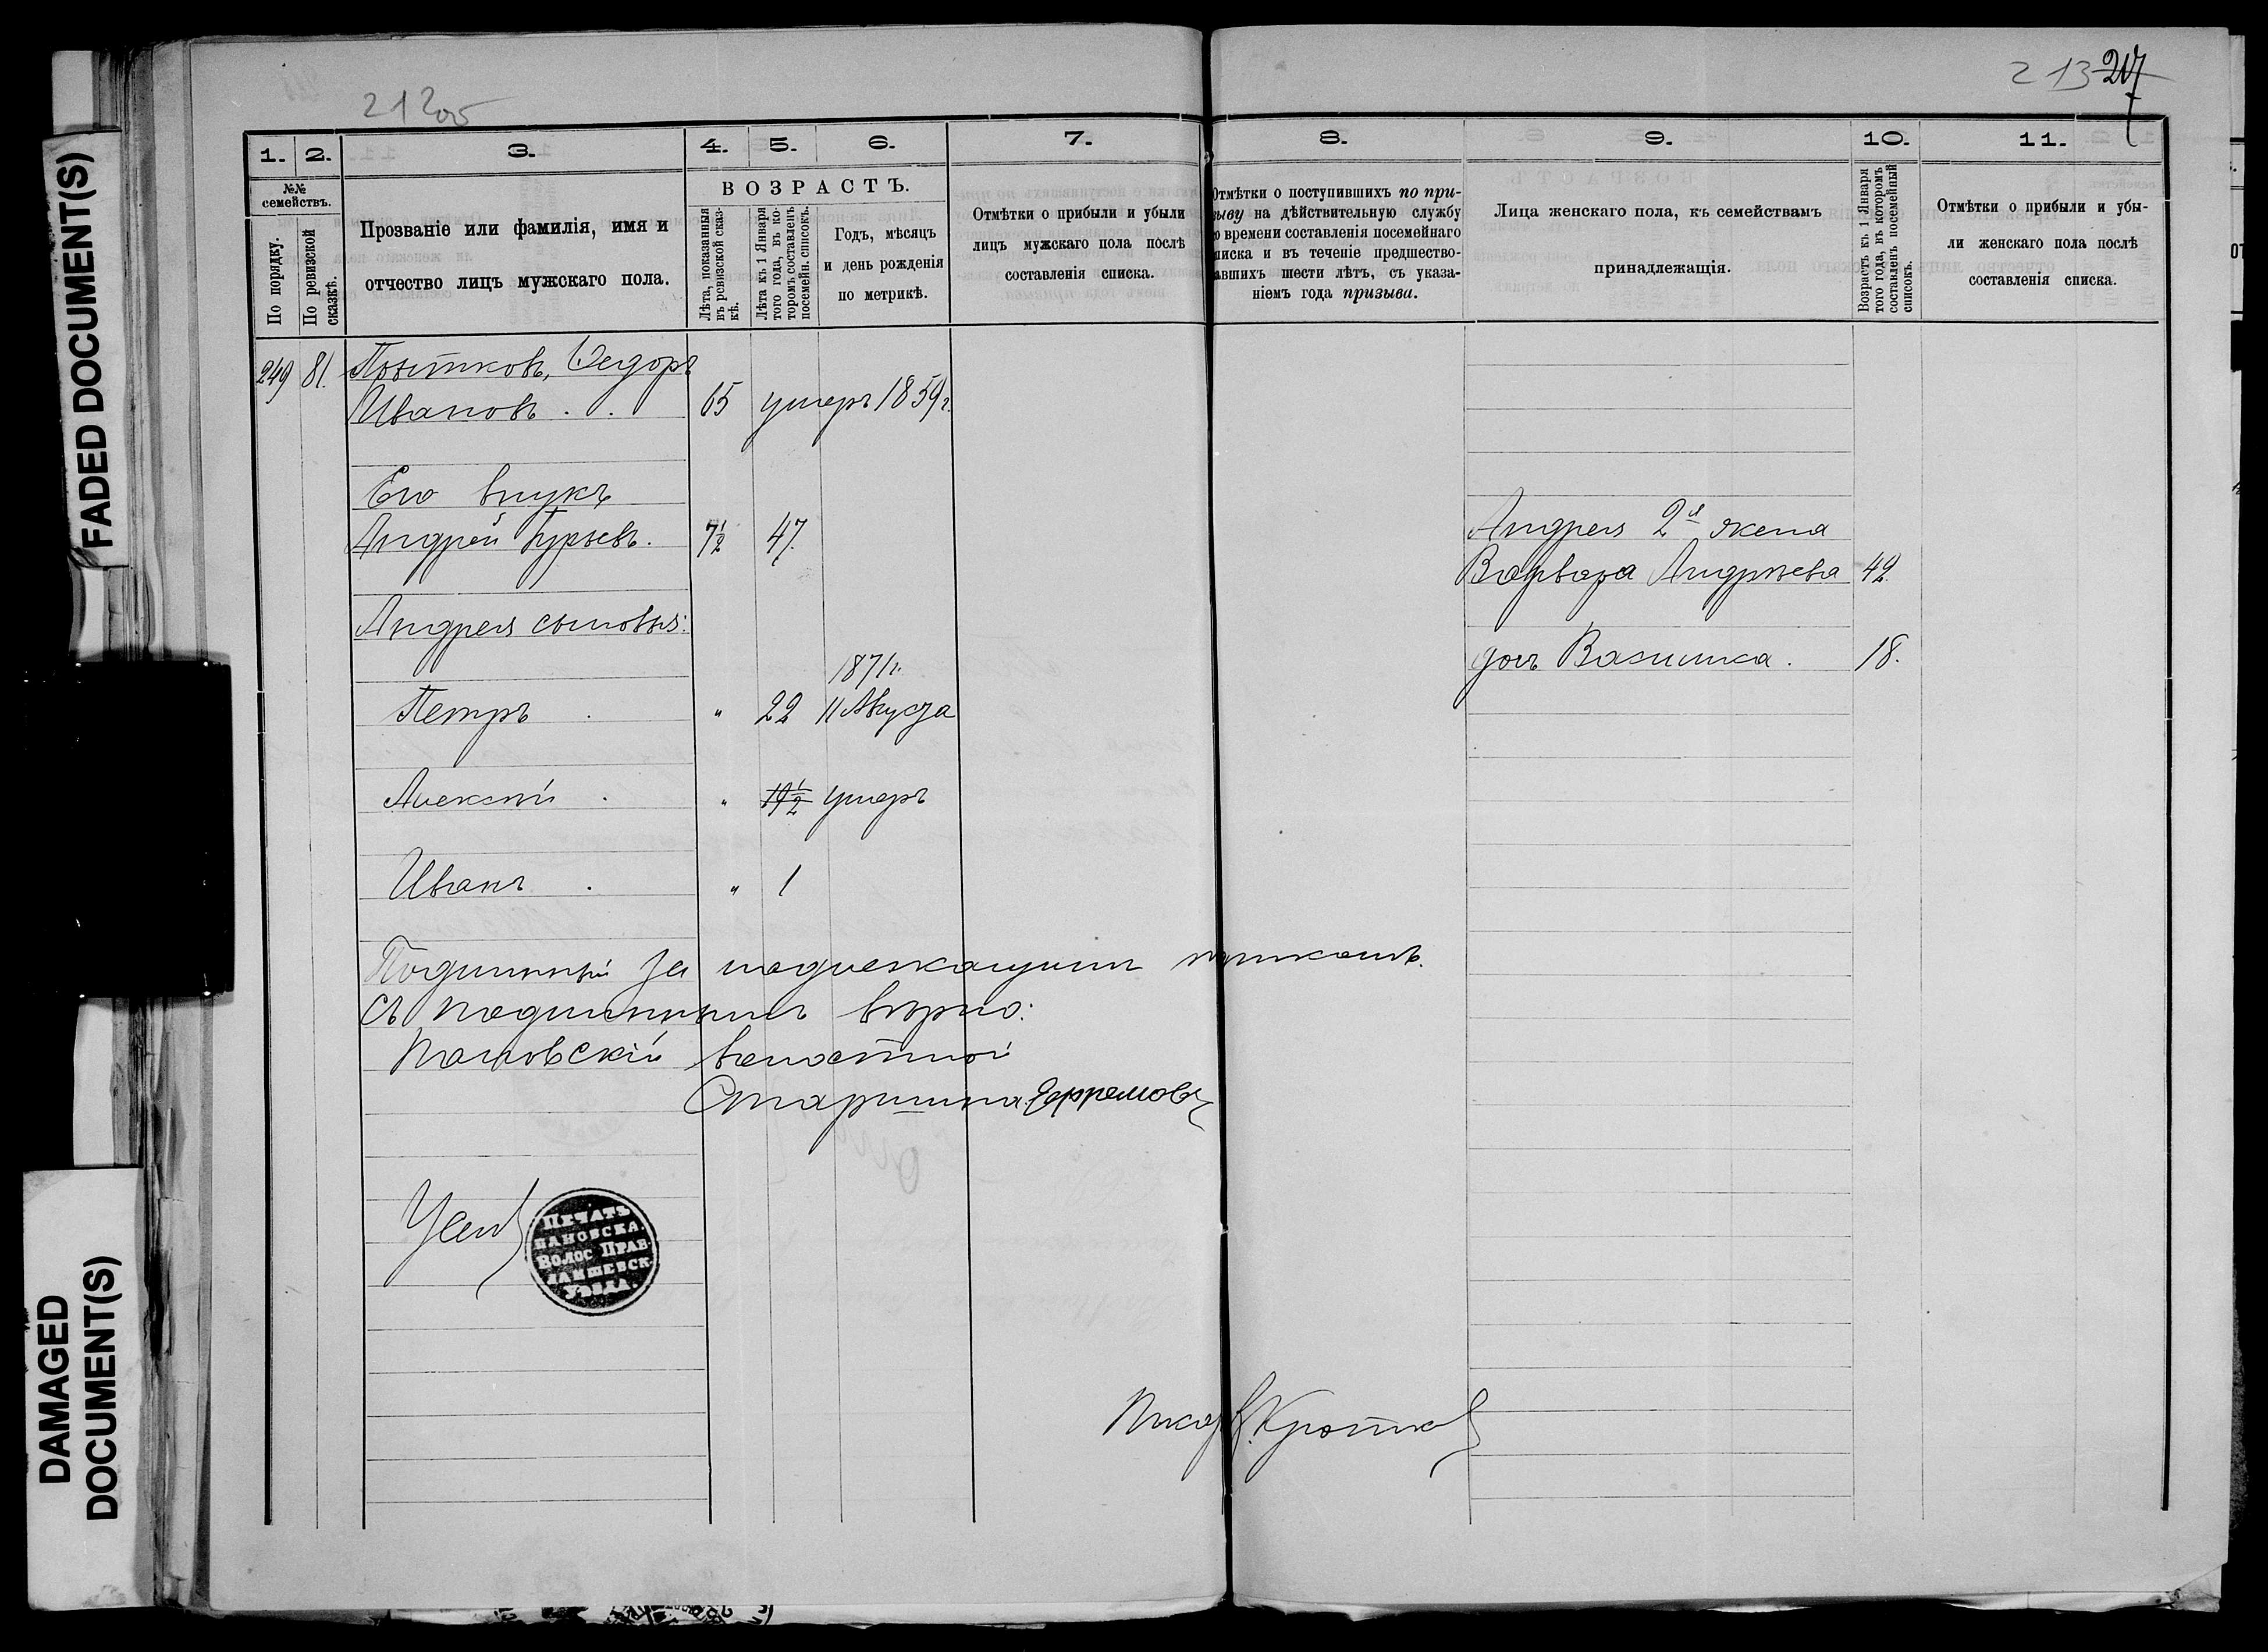 FADED DOCUMENT(S)
DAMAGED
DOCUMENT(S)
213 217
1. 2. 3. 4. 5. 6. 7. 8. 9. 10. 11.
№№
семействъ.
По порядку.
По ревизской
сказкѣ.
Прозваніе или фамилія, имя и
отчество лицъ мужскаго пола.
ВОЗРАСТЪ.
Лѣта, показанныя
въ ревизской сказ-
кѣ.
Лѣта къ 1 Января
того года, въ ко-
торомъ составленъ
посемейн. списокъ.
Годъ, мѣсяцъ
и день рожденія
по метрикѣ.
Отмѣтки о прибыли и убыли
лицъ мужскаго пола послѣ
составленія списка.
Отмѣтки о поступившихъ по при-
зыву на дѣйствительную службу
о времени составленія посемейнаго
писка и въ теченіе предшество-
авшихъ шести лѣтъ, съ указа-
ніемъ года призыва.
Лица женскаго пола, къ семействамъ
принадлежащія.
Возрастъ къ 1 Января
того года, въ которомъ
составленъ посемейный
списокъ.
Отмѣтки о прибыли и убы-
ли женскаго пола послѣ
составленія списка.
249 81. Ѳедоръ
Ивановъ . . 65 умеръ 1859 г.
Его внукъ
Андрей Гурьевъ. 7½ 47.
Андрея 2я жена
Варвара Андрѣева 42.
Андрея сыновья:
дочь Василиса. 18.
1871 г.
Петръ . " 22 11 Августа
Алексѣй . " 19½ умеръ
Иванъ . " 1
Подлинный за надлежащимъ подписомъ.
Съ подлиннымъ вѣрно:
Пановскій волостной
Старшина Ефремовъ
ПЕЧАТЬ
ПАНОВСКА.
ВОЛОС ПРАВ.
ЛАИШЕВСК.
УѢЗДА.
Писарь Кротковъ